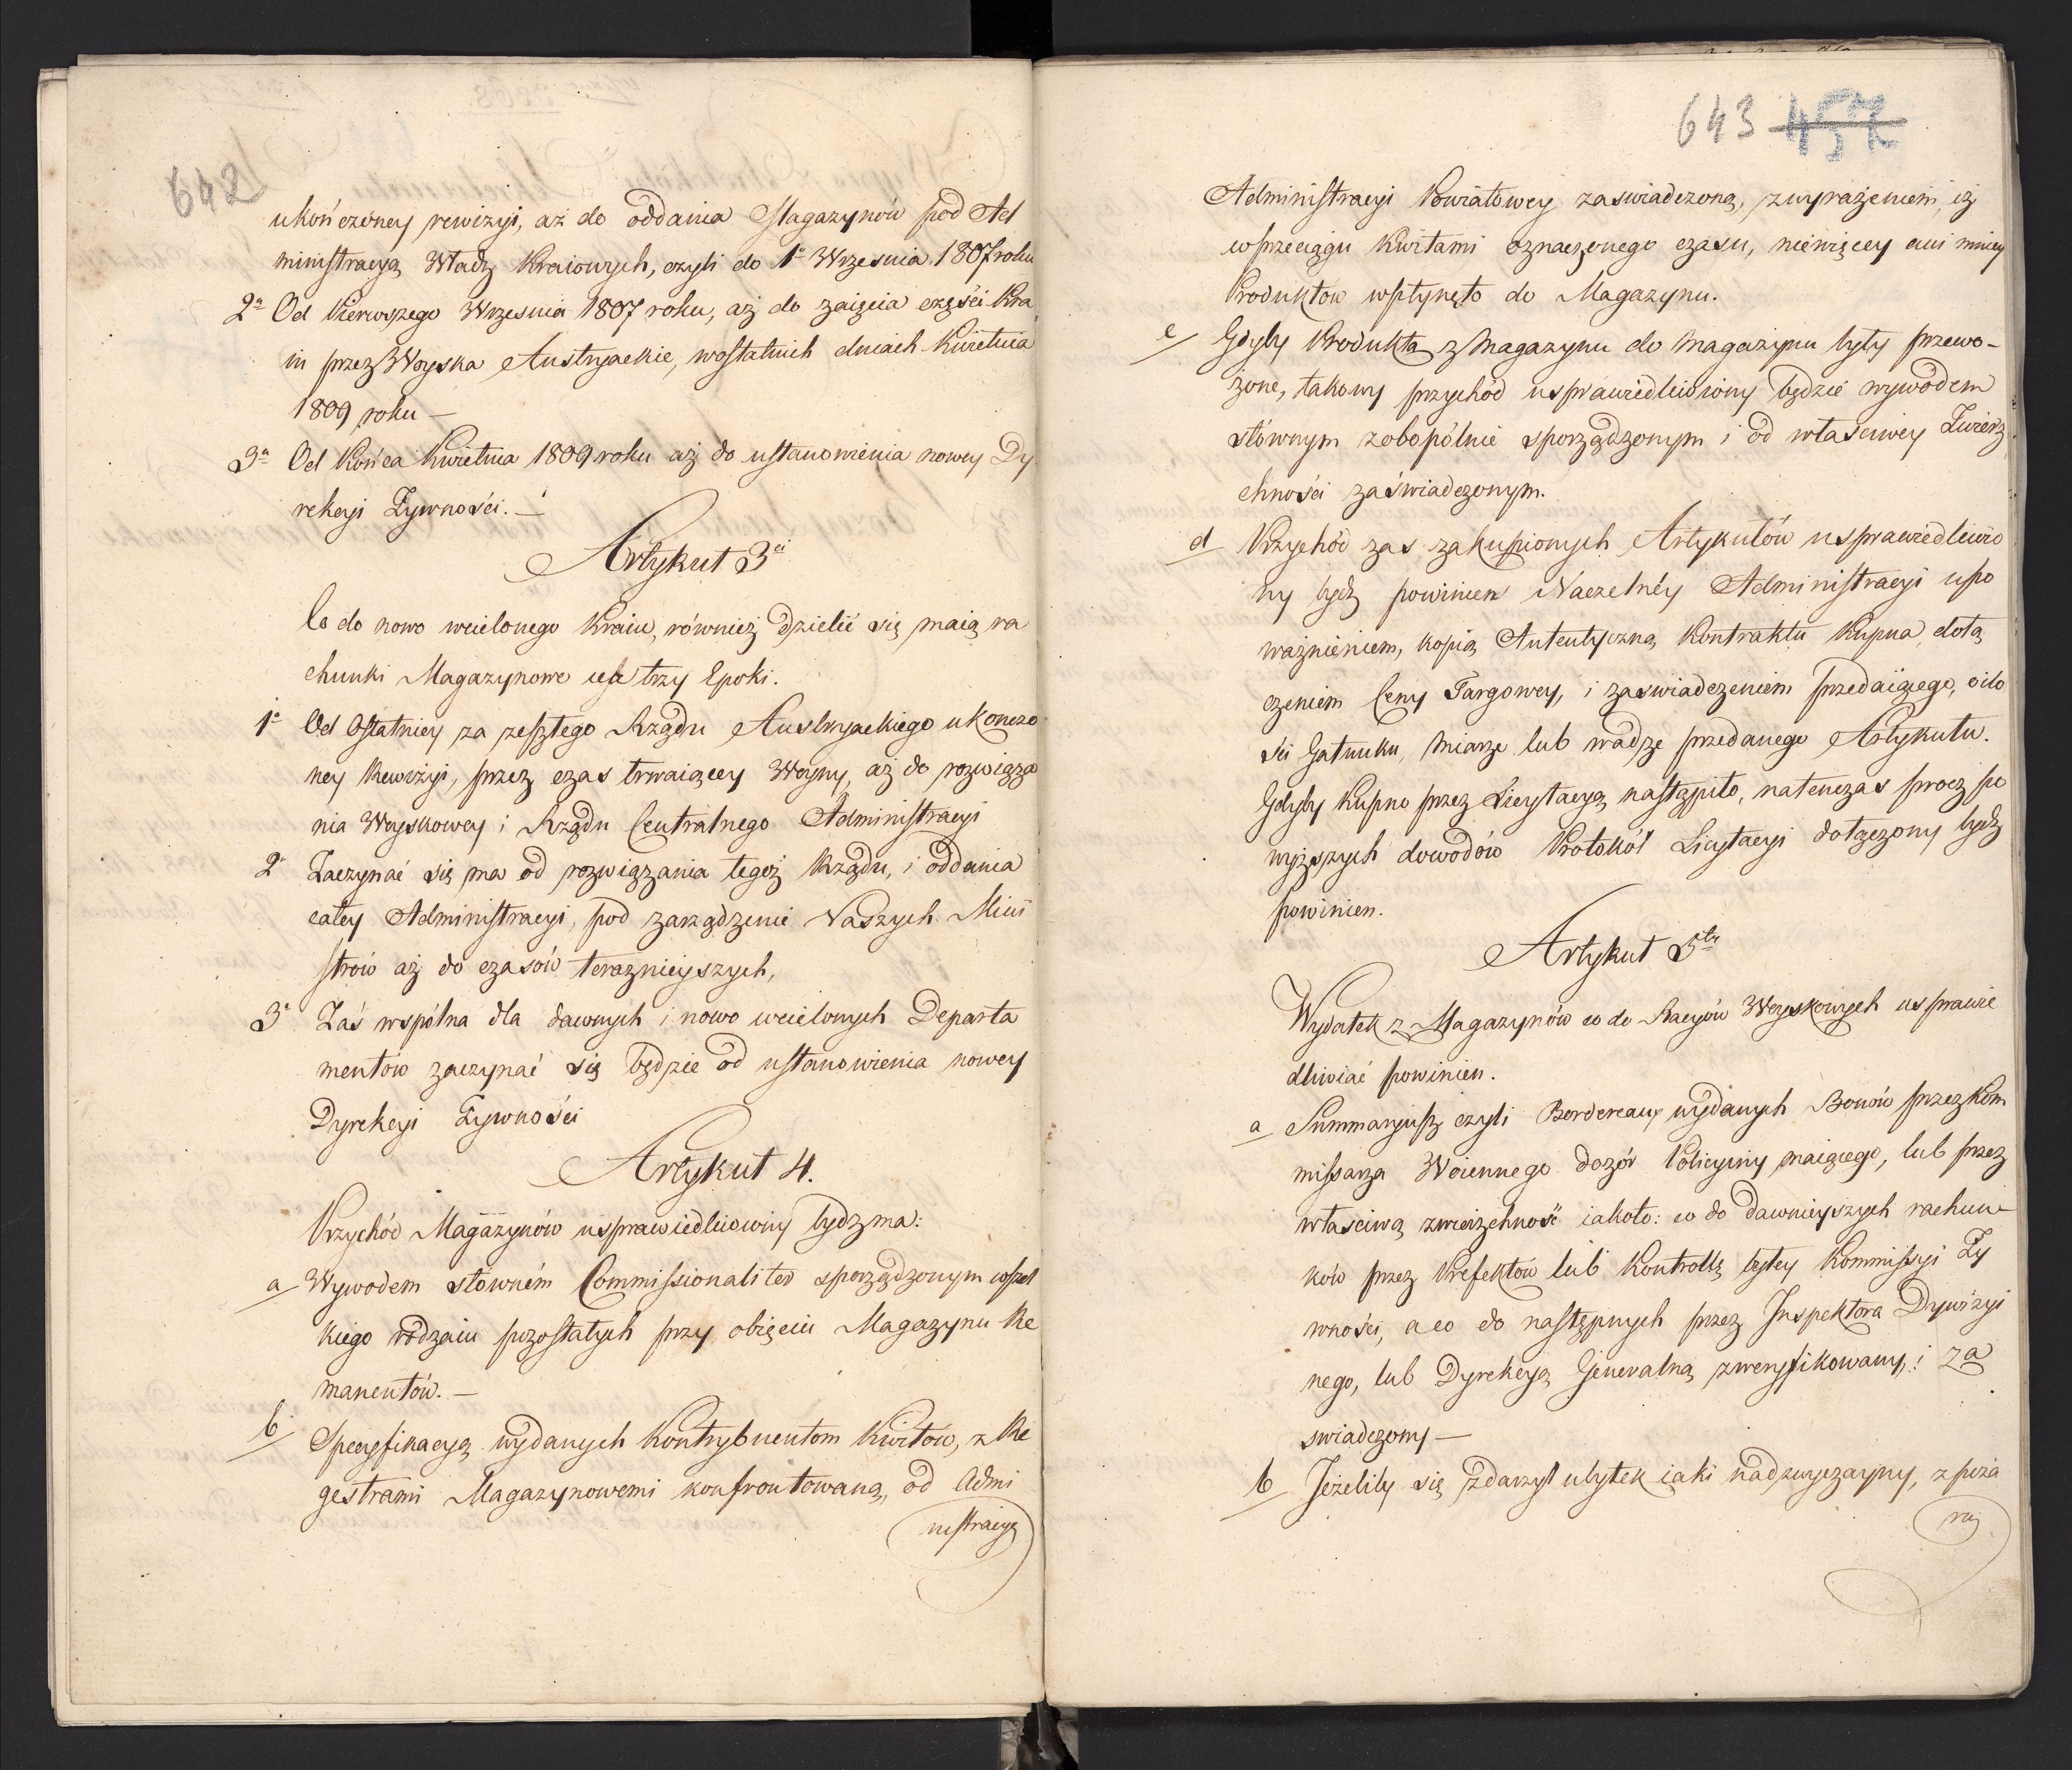 642
ukończoney rewizyi, aż do oddania Magazynów pod Ad
ministracyą Władz Kraiowych, czyli do 1º Wrzesnia 1807 roku
2ª Od Pierwszego Wrzesnia 1807 roku, aż do zaięcia części Kra
iu przez Woyska Austryackie, w ostatnich dniach Kwietnia
1809 roku —
3ª Od Końca Kwietnia 1809 roku aż do ustanowienia nowey Dy
rekcyi Żywności. —
Artykuł 3ci
Co do nowo wcielonego Kraiu, również dzielić się maią ra
chunki Magazynowe na trzy Epoki.
1ª Od Ostatniey za zeszłego Rządu Austryackiego ukończo
ney Rewizyi, przez czas trwaiącey Woyny, aż do rozwiąza
nia Woyskowey i Rządu Centralnego Administracyi
2ª Zaczynać się ma od rozwiązania tegoż Rządu, i oddania
całey Administracyi, pod zarządzenie Naszych Mini
strów aż do czasów teraznieyszych,
3ª Zaś wspólna dla dawnych i nowo wcielonych Departa
mentów zaczynać się będzie od ustanowienia nowey
Dyrekcyi Żywności
Artykuł 4.
Przychód Magazynów usprawiedliwiony bydz ma:
a Wywodem słowném Commissionaliter sporządzonym wszel
kiego rodzaiu pozostałych przy obięciu Magazynu Re
manentów. —
b Specyfikacyą wydanych Kontrybuentom Kwitów, z Re
gestrami Magazynowemi konfrontowaną, od Admi
nistracyi
643 452
Administracyi Powiatowey zaswiadczoną, z wyrażeniem, iż
w przeciągu Kwitami oznaczonego czasu, niewięcey ani mniey
Produktow wpłynęło do Magazynu.
c Gdyby Produkta z Magazynu do Magazynu były przewo-
żone, takowy przychód usprawiedliwiony będzie wywodem
słownym zobopólnie sporządzonym i od własciwey Zwierz
chności zaświadczonym.
d Przychód zas zakupionych Artykułów usprawiedliwio
ny bydz powinien Naczelnéy Administracyi upo
ważnieniem, kopią Autentyczną Kontraktu Kupna, dołą
czeniem Ceny Targowey, i zaswiadczeniem przedaiącego, o ilo
ści Gatunku, Miarze lub wadze przedanego Artykułu.
Gdyby Kupno przez Licytacyą nastąpiło, natenczas procz po
wyższych dowodów Protokół Licytacyi dołączony bydz
powinien.
Artykuł 5ty
Wydatek z Magazynów co do Racyów Woyskowych usprawie
dliwiać powinien.
a Summaryusz czyli Bordereaux wydanych Bonów przez Kom
missarza Woiennego dozór Policyiny maiącego, lub przez
własciwą zwierzchność iakoto: co do dawnieyszych rachun-
ków przez Prefektów lub Kontrollę byłey Kommissyi Ży
wności, a co do następnych przez Inspektora Dywizyi
nego, lub Dyrekcyą Generalną zweryfikowany, i za
swiadczony —
b Jeżeliby się zdarzył ubytek iaki nadzwyczayny, z poża
ru